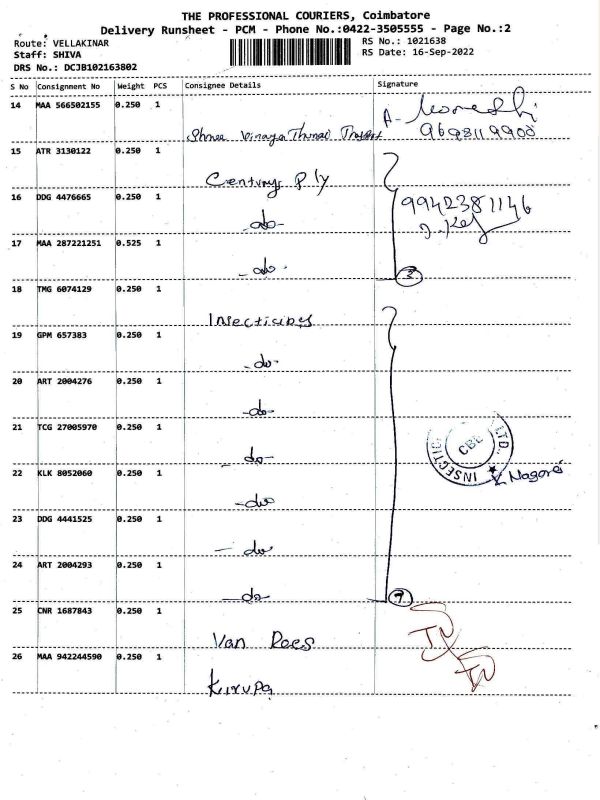 THE PROFESSIONAL COURIERS, Coimbatore
Delivery Runsheet - PCM - Phone No.:0422-3505555 - Page No.:2
Route: VELLAKINAR
RS No.: 1021638
Staff: SHIVA
RS Date: 16-Sep-2022
DRS No.: DCJB102163802
S No Consignment No Weight PCS Consignee Details Signature
14 MAA 566502155 0.250 1
9698119900
15 ATR 3130122 0.250 1
Century Ply
16 DDG 4476665 0.250 1
-do-
9942381146
17 MAA 287221251 0.525 1
-do-
3
18 TMG 6074129 0.250 1
Insecticides
19 GPM 657383 0.250 1
-do-
20 ART 2004276 0.250 1
-do-
21 TCG 27005970 0.250 1
-do-
INSECTIC LTD. CBE
22 KLK 8052060 0.250 1
-do-
23 DDG 4441525 0.250 1
-do-
24 ART 2004293 0.250 1
-do-
7
25 CNR 1687843 0.250 1
Van Rees
26 MAA 942244590 0.250 1
Kirupa